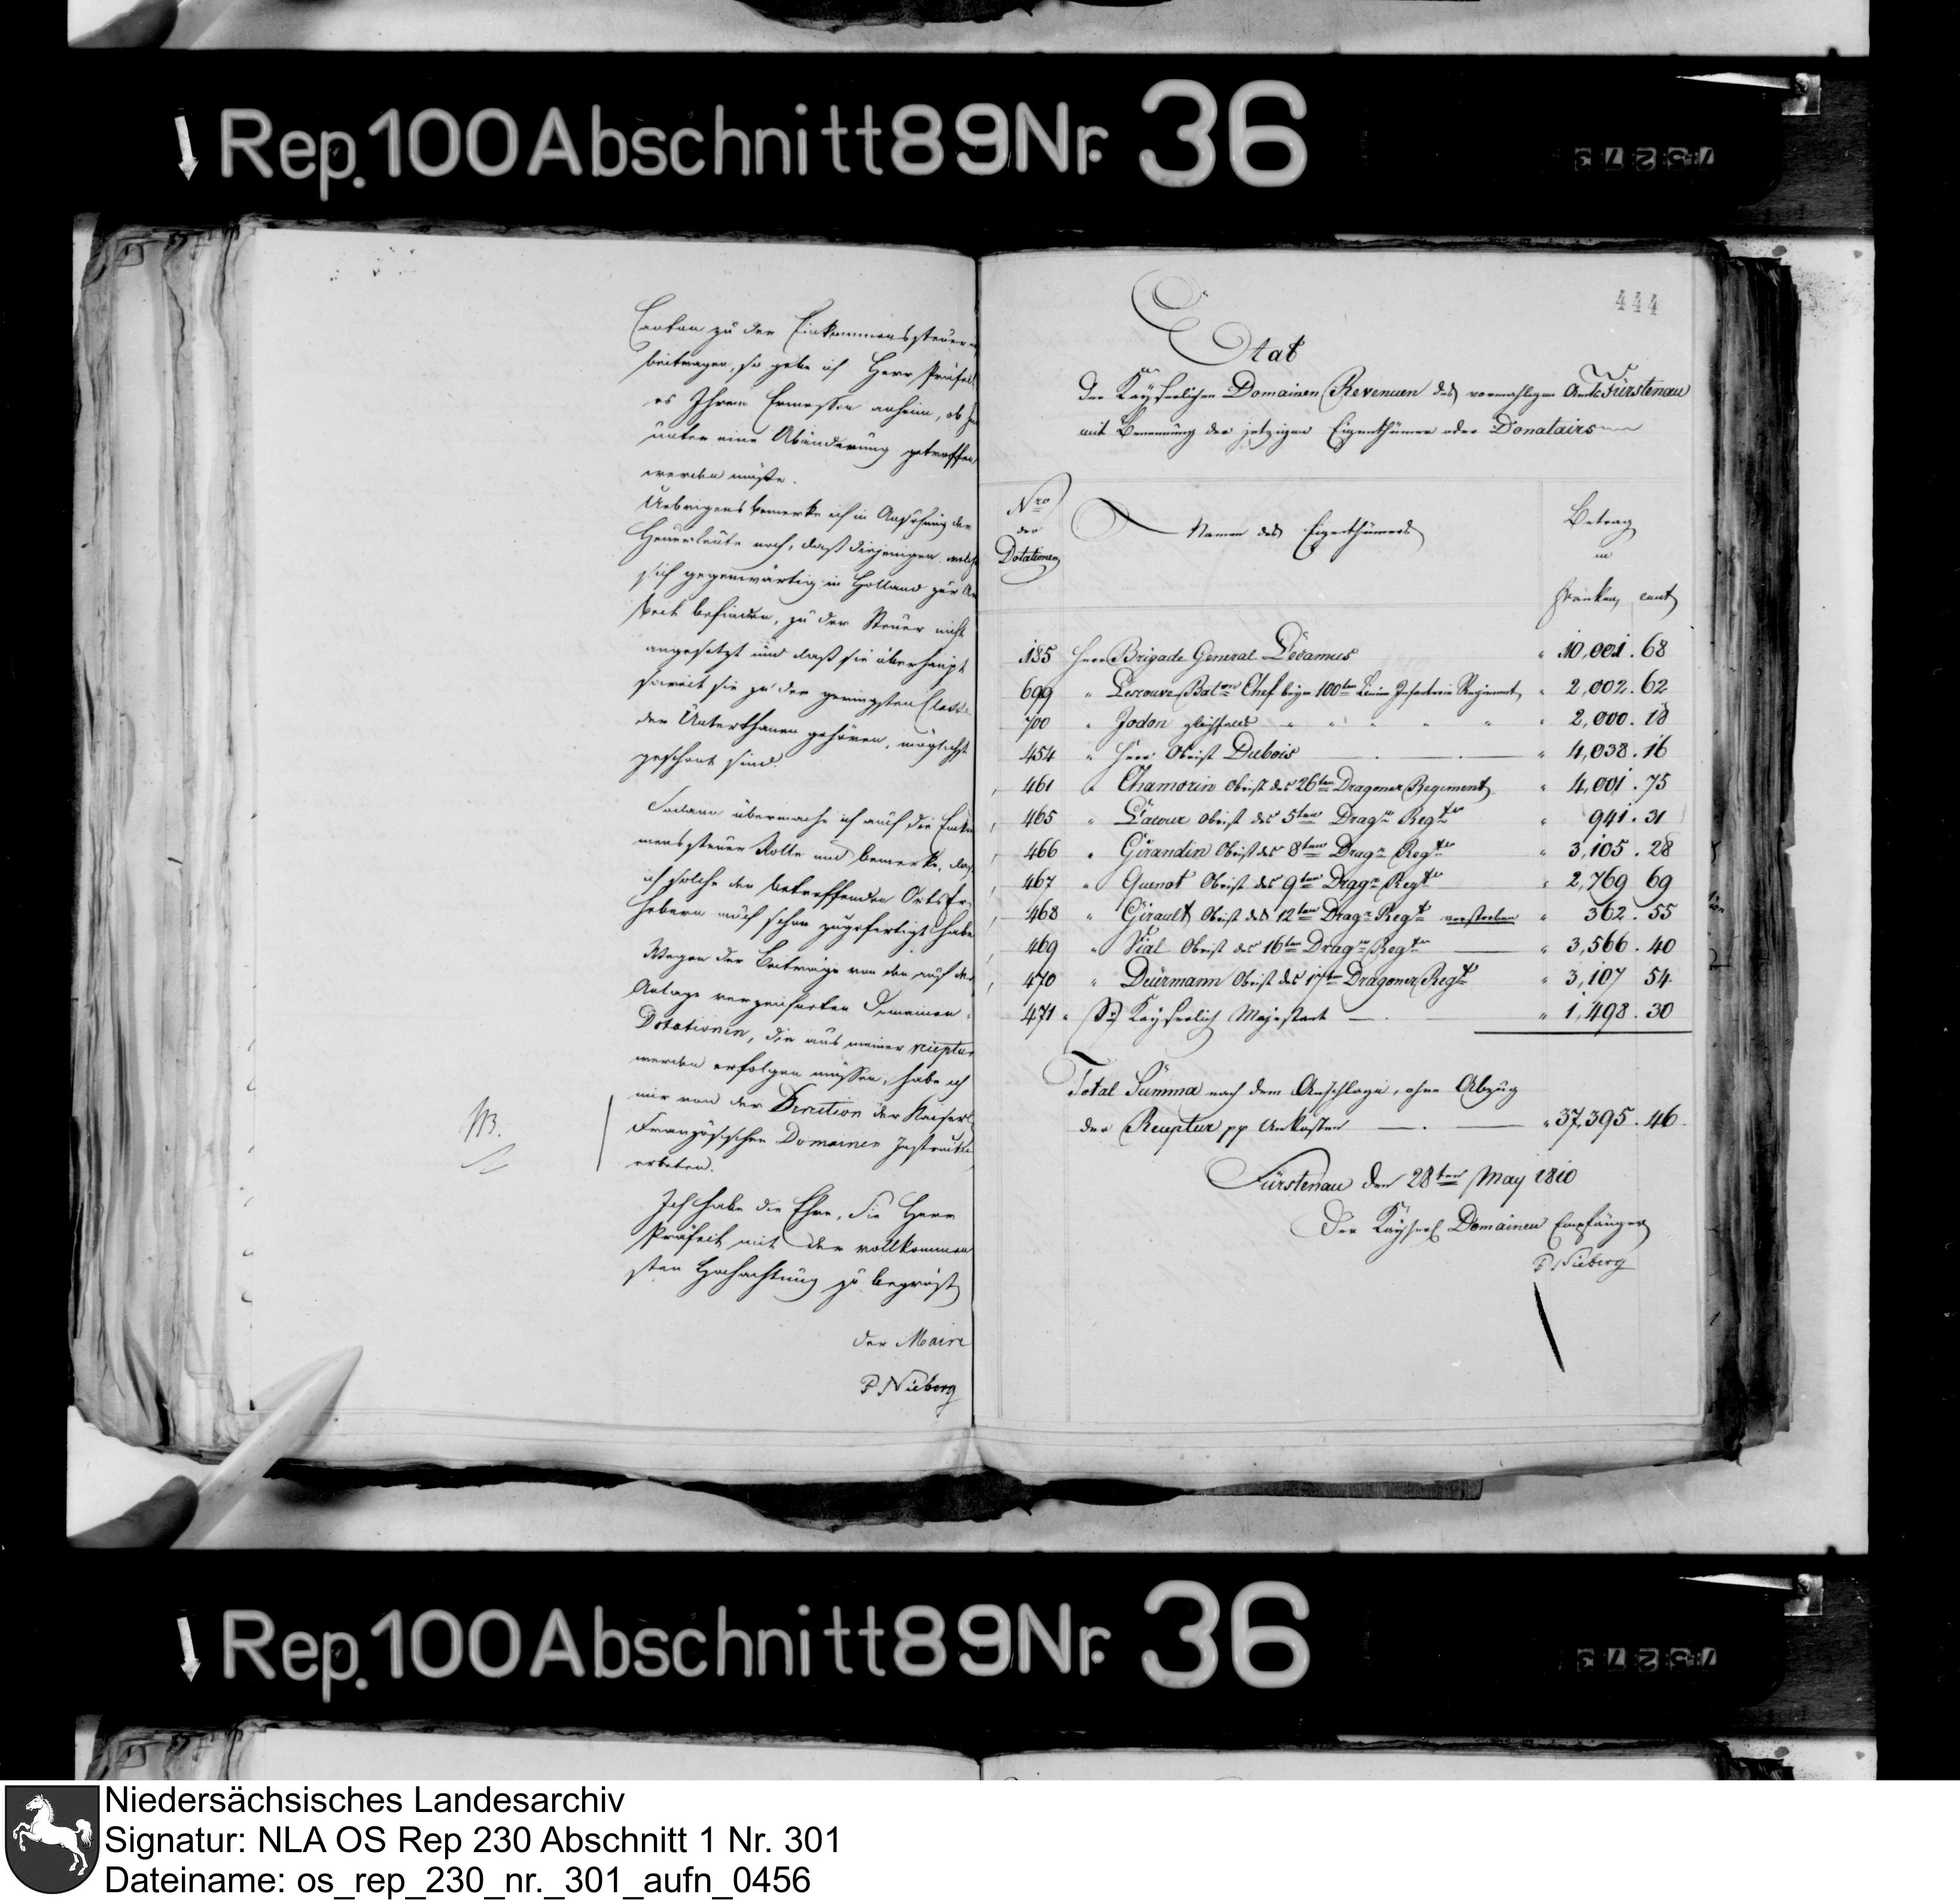 Rep. 100 Abschnitt 89 Nr. 36
75273
Canton zu der Einkommenssteuer
beitragen, so gebe ich Herr Präfect
es Ihrem Ermessen anheim, ob
unter eine Abänderung getroffen
werden müßte.
Uebrigens bemerke ich in Ansehung der
Heuerleute noch, daß diejenigen welche
sich gegenwärtig in Holland zur
beit befinden, zu der Steuer nicht
angesetzt und daß sie überhaupt
soweit sie zu der geringsten Classe
der Unterthanen gehören, möglichst
geschont sind.
Sodann übermache ich auch die
menssteuer Rolle und bemerke, daß
ich solche den betreffenden Orts
hebern auch schon zugefertigt habe
Wegen der Beiträge von den auf der
Anlage verzeichneten Domainen
Dotationen, die aus meiner receptur
werden erfolgen müssen, habe ich
mir von der Direction der Kaiserl
Französischen Domainen Instructi
erbeten.
Ich habe die Ehre, Sie Herr
Präfect mit der vollkommen
sten Hochachtung zu begrüßen
der Maire
P Nieberg
444
Etat
Der Kayserlichen Domainen Revenuen des vormahligen Amts Fürstenau
mit Benennung der jetzigen Eigenthümer oder Donatairs
Nro der Dotationen
Namen des Eigenthümers
Betrag in
Franken, cent
185 Herr Brigade General Devamus " 10,001. 68
699 " Lescouve Baton Chef beym 100ten Linien Infanterie Regiment " 2,002. 62
700 " Jodon gleichfals " " " " " " 2,000. 18
454 " Herr Obrist Dubois " 4,038. 16
461 " Chamorin Obrist des 26ten Dragoner Regiment " 4,001. 75
465 " Lacour Obrist des 5ten Dragr Regts " 941. 31
466 " Girandin Obrist des 8ten Dragr Regts " 3,105. 28
467 " Quenot Obrist des 9ten Dragr Regts " 2,769 69
468 " Girault Obrist des 12ten Dragr Regts verstorben " 362. 55
469 " Vial Obrist des 16ten Dragr Regts " 3,566. 40
470 " Deürmann Obrist des 17ten Dragoner Regts " 3,107 54
471 " Se Kayserlich Majestaet " 1,498. 30
Total Summa nach dem Anschlage, ohne Abzug
der Receptur pp Unkosten " 37,395. 46
Fürstenau den 28ten May 1810
Der Kayserl Domainen Empfänger
P Nieberg
Rep. 100 Abschnitt 89 Nr. 36
75273
Niedersächsisches Landesarchiv
Signatur: NLA OS Rep 230 Abschnitt 1 Nr. 301
Dateiname: os_rep_230_nr._301_aufn_0456